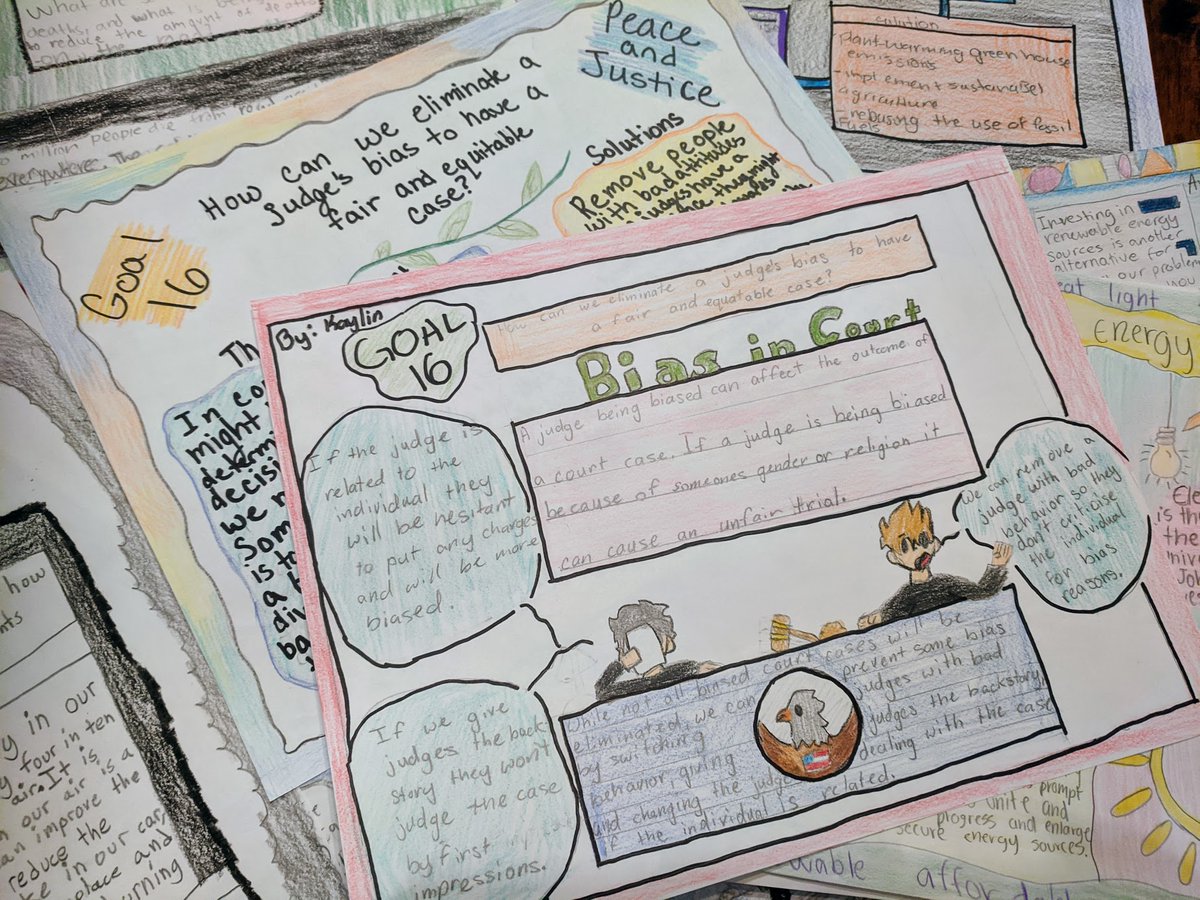 What are
deaths, and what is being
to reduce the amount of deaths
million people die from road
everywhere. The
Peace
and
Justice
How can we eliminate a
judge's bias to have a
fair and equitable
case?
Goal
16
Solutions
Remove people
with bad attitudes
judges have a
this might
In co
might
determi
decisi
we n
Som
is to
a b
div
ba
solution
Plant-warming green house
emissions
-implement
agriculture
the use of fossil
Fuels
Investing in
renewable energy
sources is another
alternative for
our problem
eat light
Energy
By: Kaylin
GOAL
16
How can we eliminate a judge's bias to have
a fair and equatable case?
Bias in Court
A judge being biased can affect the outcome of
a court case. If a judge is being biased
because of someones gender or religion it
can cause an unfair trial.
If the judge is
related to the
individual they
will be hesitant
to put any charges
and will be more
biased.
We can remove a
judge with bad
behavior so they
don't criticise
the individual
for bias
reasons.
If we give
judges the back
story they won't
judge the case
by first
impressions.
While not all biased court cases will be
eliminated, we can prevent some bias
by switching judges with bad
behavior, giving judges the backstory,
and changing the judge dealing with the case
if the individual is related.
how
nts
y in our
y four in ten
air. It is
n our air is a
an improve the
reduce the
te in our car,
place and
urning
Ele
is th
the
Jo
prompt
unite and
progress and enlarge
secure energy sources.
wable
affordabl